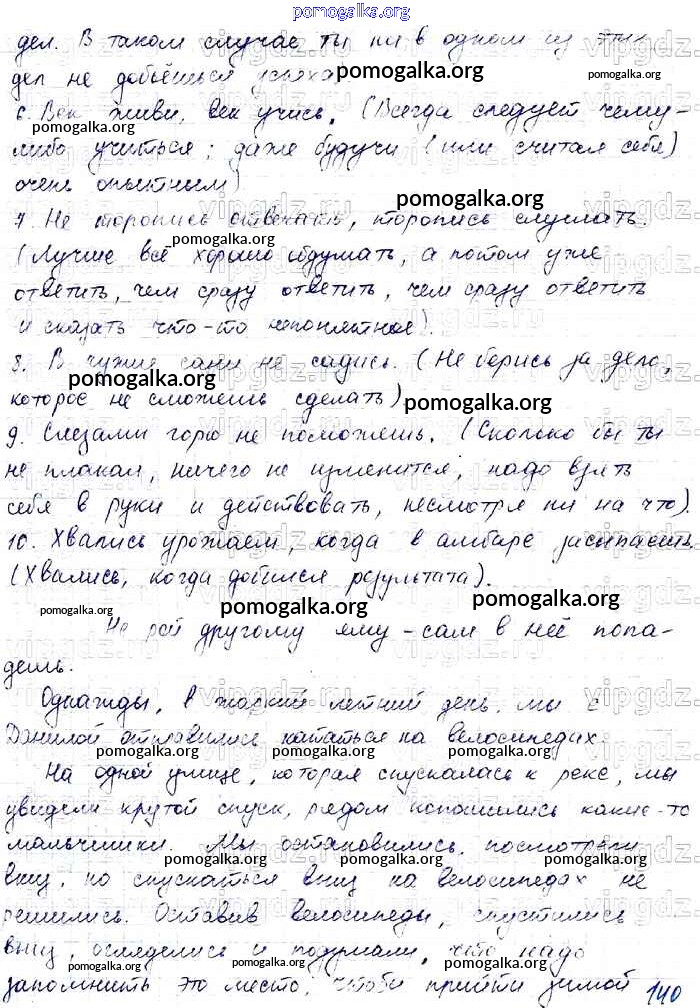 pomogalka.org
дел. В таком случае ты ни в одном из этих
дел не добьёшься успеха pomogalka.org pomogalka.org
6. Век живи, век учись. (Всегда следует чему-
pomogalka.org pomogalka.org
либо учиться; даже будучи (или считая себя)
очень опытным)
pomogalka.org
7. Не торопись отвечать, торопись слушать.
pomogalka.org
(Лучше всё хорошо обдумать, а потом уже
ответить, чем сразу ответить, чем сразу ответить
и сказать что-то непонятное).
8. В чужие сани не садись. (Не берись за дело,
pomogalka.org
которое не сможешь сделать) pomogalka.org
9. Слезами горю не поможешь. (Сколько бы ты
не плакал, ничего не изменится, надо взять
себя в руки и действовать, несмотря ни на что).
10. Хвались урожаем, когда в амбаре засыпаешь.
(Хвались, когда добился результата).
pomogalka.org pomogalka.org pomogalka.org
Не рой другому яму - сам в неё попа-
дешь.
Однажды, в жаркий летний день, мы с
Данилой отправились кататься на велосипедах.
pomogalka.org pomogalka.org pomogalka.org
На одной улице, которая спускалась к реке, мы
увидели крутой спуск, рядом копошились какие-то
мальчишки. Мы остановились, посмотрели
pomogalka.org pomogalka.org pomogalka.org
вниз, но спускаться вниз на велосипедах не
решились. Оставив велосипеды, спустились
pomogalka.org pomogalka.org pomogalka.org
вниз, осмотрелись и подумали, что надо
запомнить это место, чтобы прийти зимой
140
vipgdz.ru